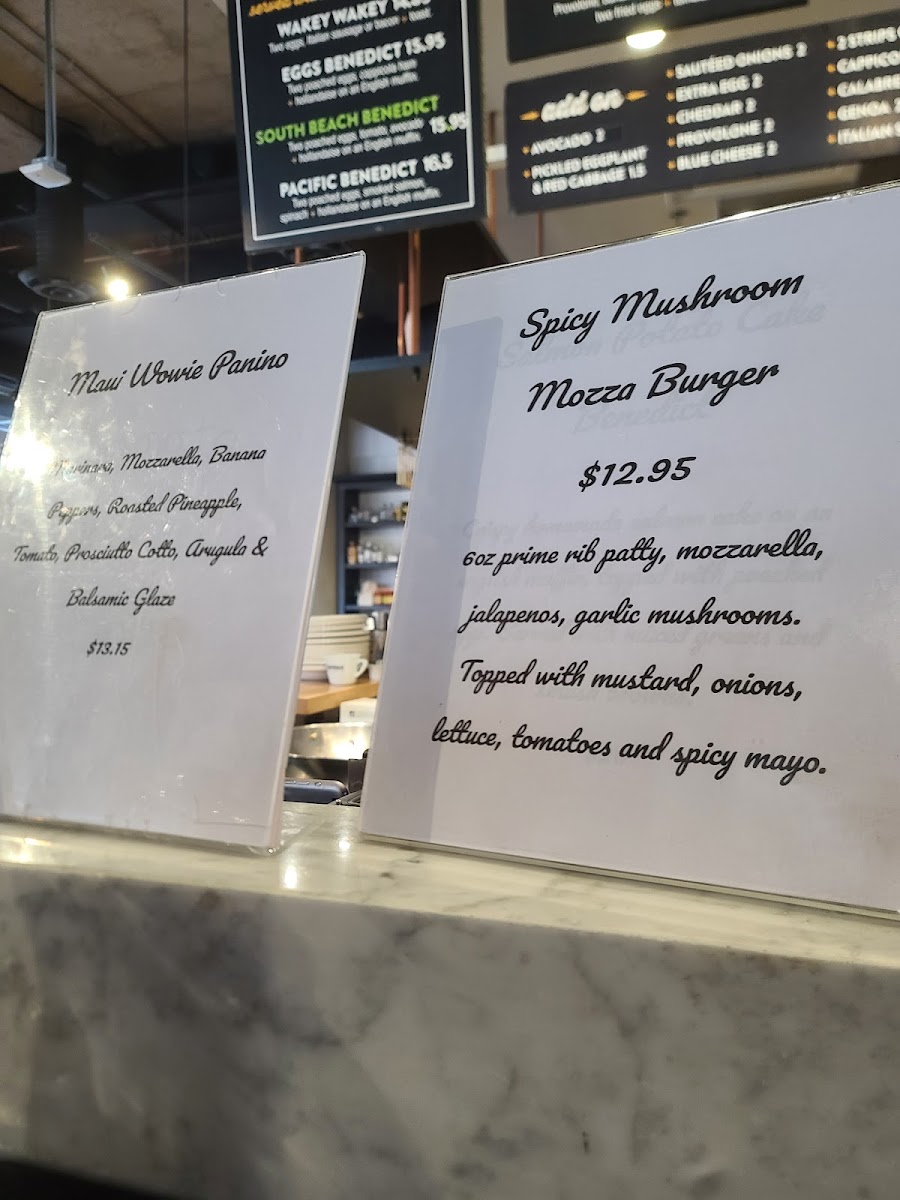 WAKEY WAKEY
Two eggs, Italian sausage or bacon + toast.
EGGS BENEDICT 15.95
Two poached eggs, cappicollo ham
+ hollandaise on an English muffin.
SOUTH BEACH BENEDICT
Two poached eggs, tomato, avocado 15.95
+ hollandaise on an English muffin.
PACIFIC BENEDICT 16.5
Two poached eggs, smoked salmon,
spinach + hollandaise on an English muffin.
two fried eggs
add on
AVOCADO 2
PICKLED EGGPLANT
& RED CABBAGE 1.5
SAUTÉED ONIONS 2
EXTRA EGG 2
CHEDDAR 2
PROVOLONE 2
BLUE CHEESE 2
2 STRIPS
CAPPICO
CALABRE
GENOA 2
ITALIAN
Maui Wowie Panino
Marinara, Mozzarella, Banana
Peppers, Roasted Pineapple,
Tomato, Prosciutto Cotto, Arugula &
Balsamic Glaze
$13.15
Spicy Mushroom
Mozza Burger
$12.95
6oz prime rib patty, mozzarella,
jalapenos, garlic mushrooms.
Topped with mustard, onions,
lettuce, tomatoes and spicy mayo.